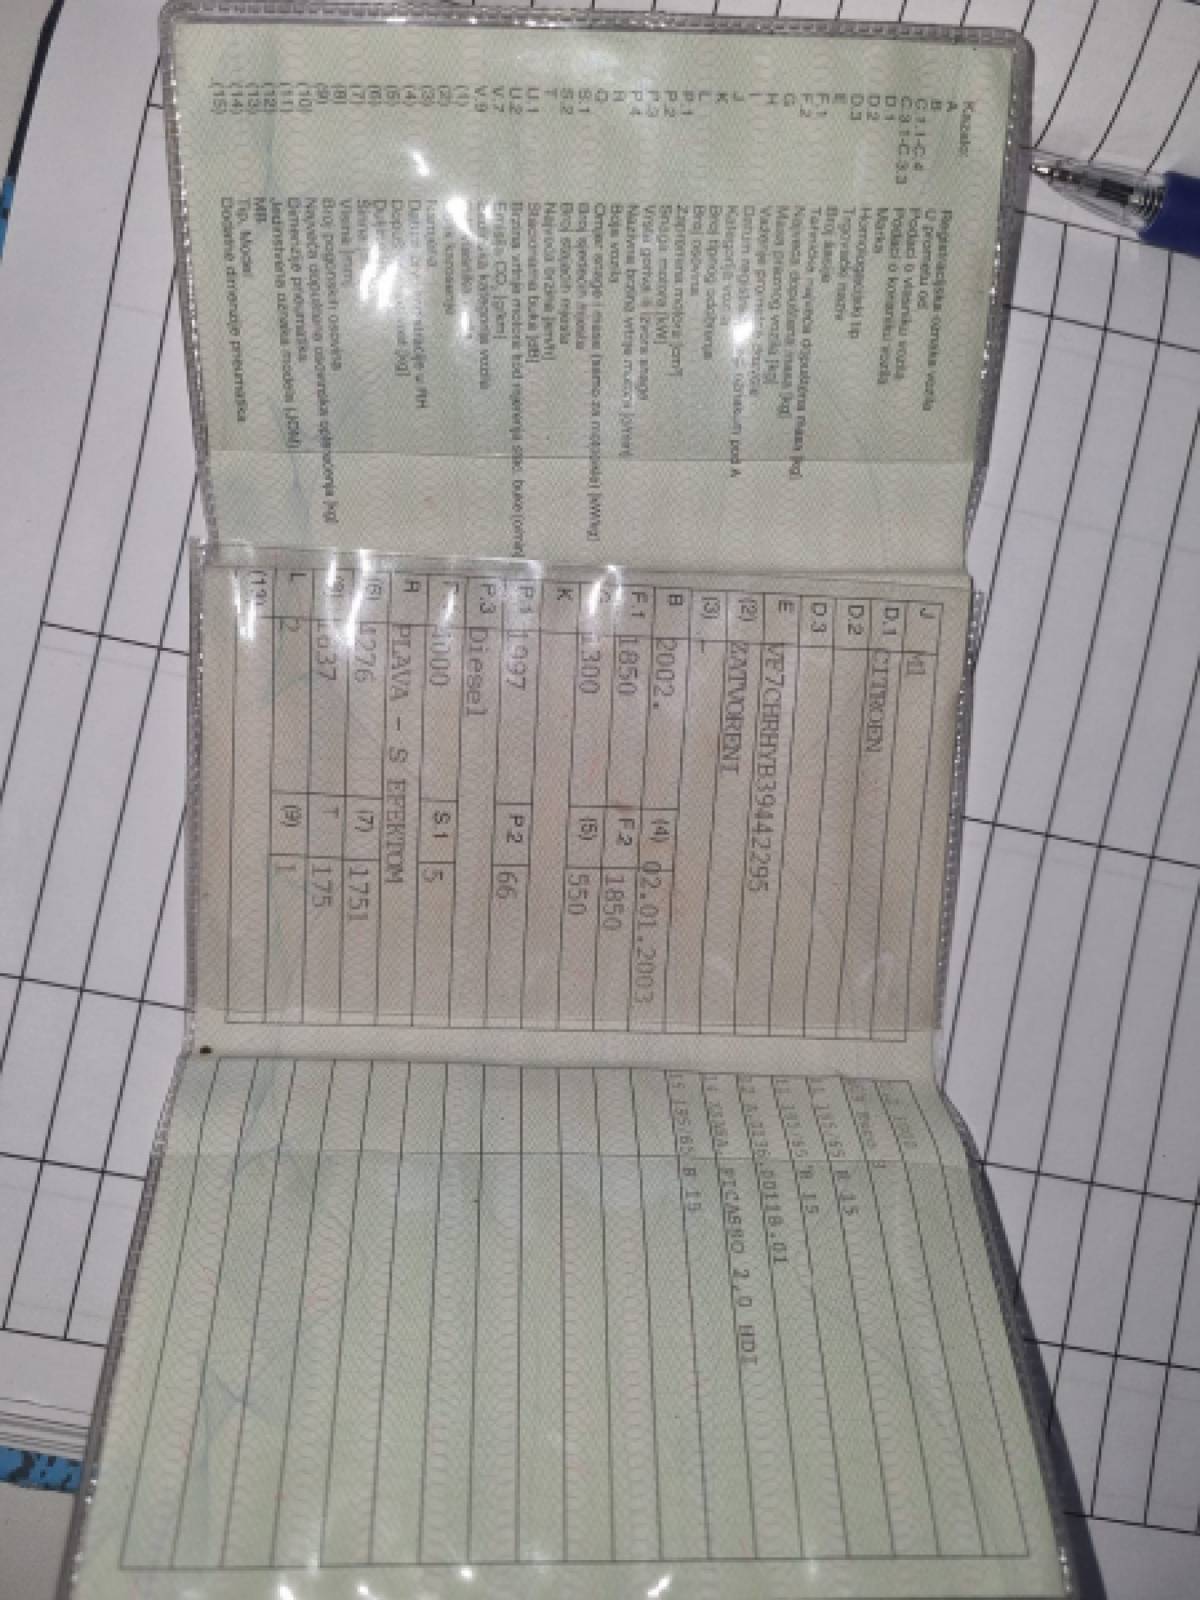 Kazalo:
A Registracijska oznaka vozila
B U prometu od
C.1.1-C.4 Podaci o vlasniku vozila
C.3.1-C.3.3 Podaci o korisniku vozila
D.1 Marka
D.2 Homologacijski tip
D.3 Trgovački naziv
E Broj šasije
F.1 Tehnička najveća dopuštena masa [kg]
F.2 Najveća dopuštena masa [kg]
G Masa praznog vozila [kg]
H Važenje prometne dozvole
I Datum pod A
J Kategorija vozila
K Broj tipnog odobrenja
L Broj osovina
P.1 Zapremina motora [cm³]
P.2 Snaga motora [kW]
P.3 Vrsta goriva ili izvora snage
P.4 Nazivna brzina vrtnje motora [o/min]
R Boja vozila
Q Omjer snage i mase (samo za motocikle) [kW/kg]
S.1 Broj sjedećih mjesta
S.2 Broj stajaćih mjesta
T Najveća brzina [km/h]
U.1 Stacionarna buka [dB]
U.2 Brzina vrtnje motora kod mjerenja stac. buke [o/min]
V.7 Emisija CO₂ [g/km]
V.9 kategorija vozila
(1)
(2)
(3) Namjena
(4) Datum prve registracije u RH
(5) [kg]
(6)
(7) Širina [mm]
(8) Visina [mm]
(9) Broj pogonskih osovina
(10) Najveća dopuštena osovinska opterećenja [kg]
(11) Dimenzije pneumatika
(12) Jedinstvena oznaka modela (JOM)
(13) MB
(14) Tip, Model
(15) Dodatne dimenzije pneumatika
J M1
D.1 CITROEN
D.2
D.3
E VF7CHRHYB39442295
(2) ZATVORENI
(3) -
B 2002. (4) 02.01.2003
F.1 1850 F.2 1850
G 1300 (5) 550
K
P.1 1997 P.2 66
P.3 Diesel
4000 S.1 5
R PLAVA - S EFEKTOM
(6) 4276 (7) 1751
(8) 1637 T 175
L 2 (9) 1
(13)
11 185/65 R 15
14 XSARA PICASSO 2,0 HDI
15 195/65 R 15